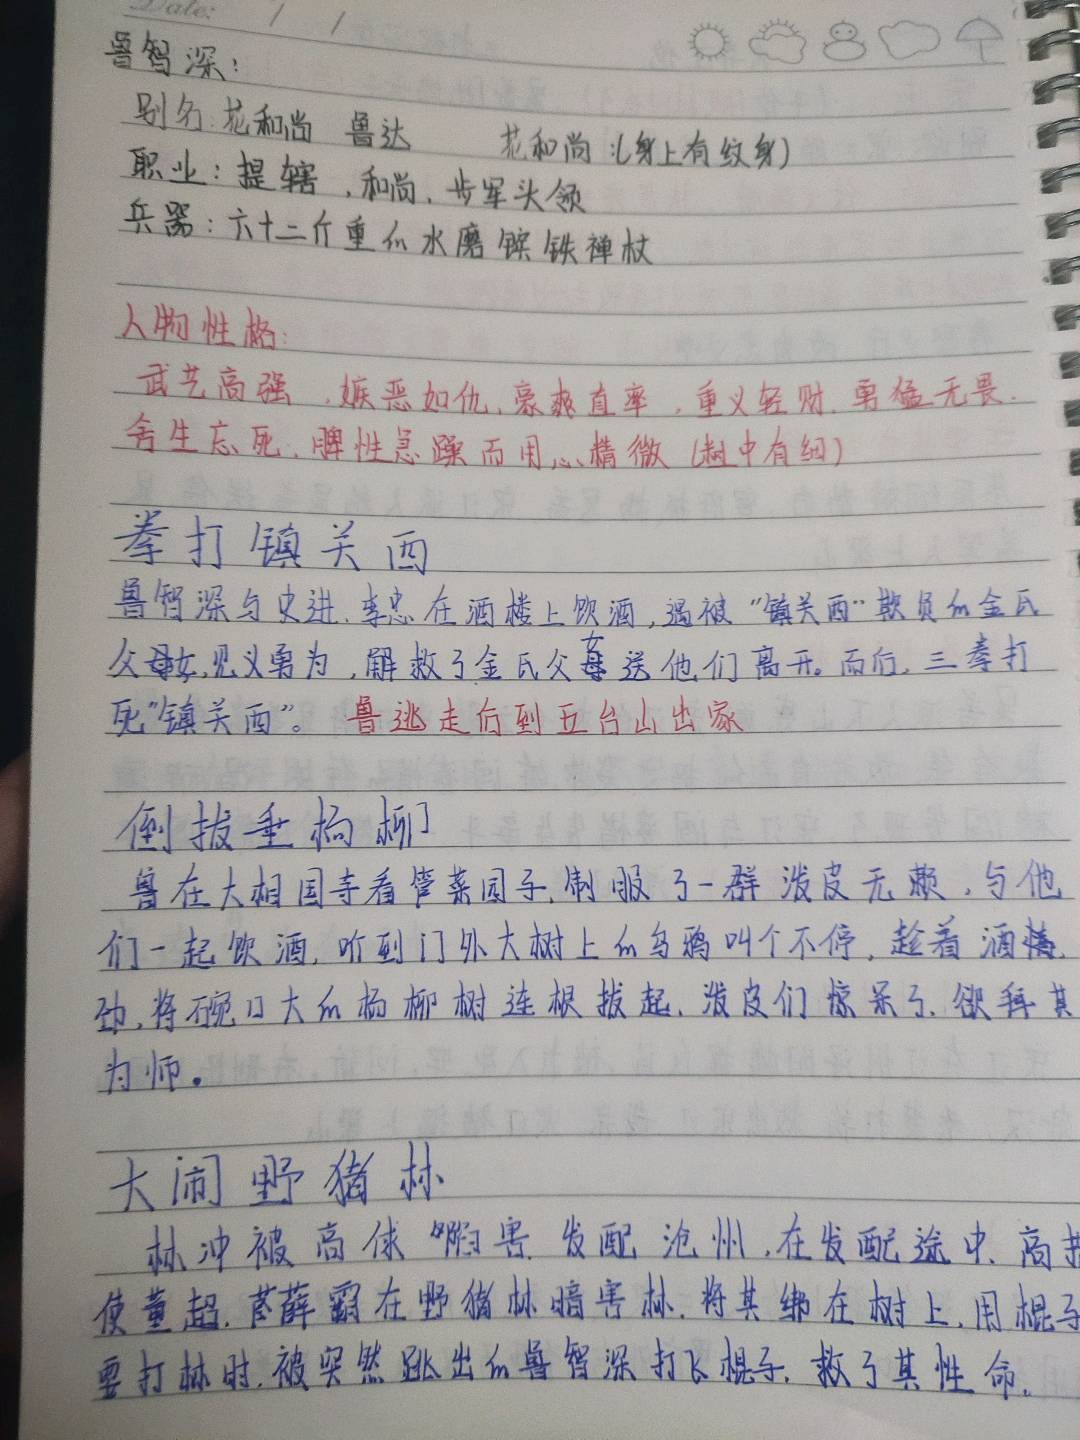 Date: / /
鲁智深：
别名：花和尚 鲁达 花和尚：(身上有纹身)
职业：提辖，和尚，步军头领
兵器：六十二斤重的水磨镔铁禅杖
人物性格：
武艺高强，嫉恶如仇，豪爽直率，重义轻财，勇猛无畏，
舍生忘死，脾性急躁而用心精微(粗中有细)
拳打镇关西
鲁智深与史进，李忠在酒楼上饮酒，遇被“镇关西”欺负的金氏
父女，见义勇为，解救了金氏父女送他们离开。而后，三拳打
死“镇关西”。 鲁逃走后到五台山出家
倒拔垂杨柳
鲁在大相国寺看管菜园子，制服了一群泼皮无赖，与他
们一起饮酒，听到门外大树上的乌鸦叫个不停，趁着酒
劲，将碗口大的杨柳树连根拔起，泼皮们惊呆了，欲拜其
为师。
大闹野猪林
林冲被高俅陷害，发配沧州，在发配途中，高指
使董超，薛霸在野猪林暗害林，将其绑在树上，用棍子
要打林时，被突然跳出的鲁智深打飞棍子，救了其性命。